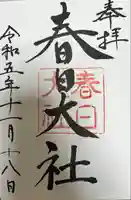 奉拝
春日大社
春日大社
令和五年十一月十八日